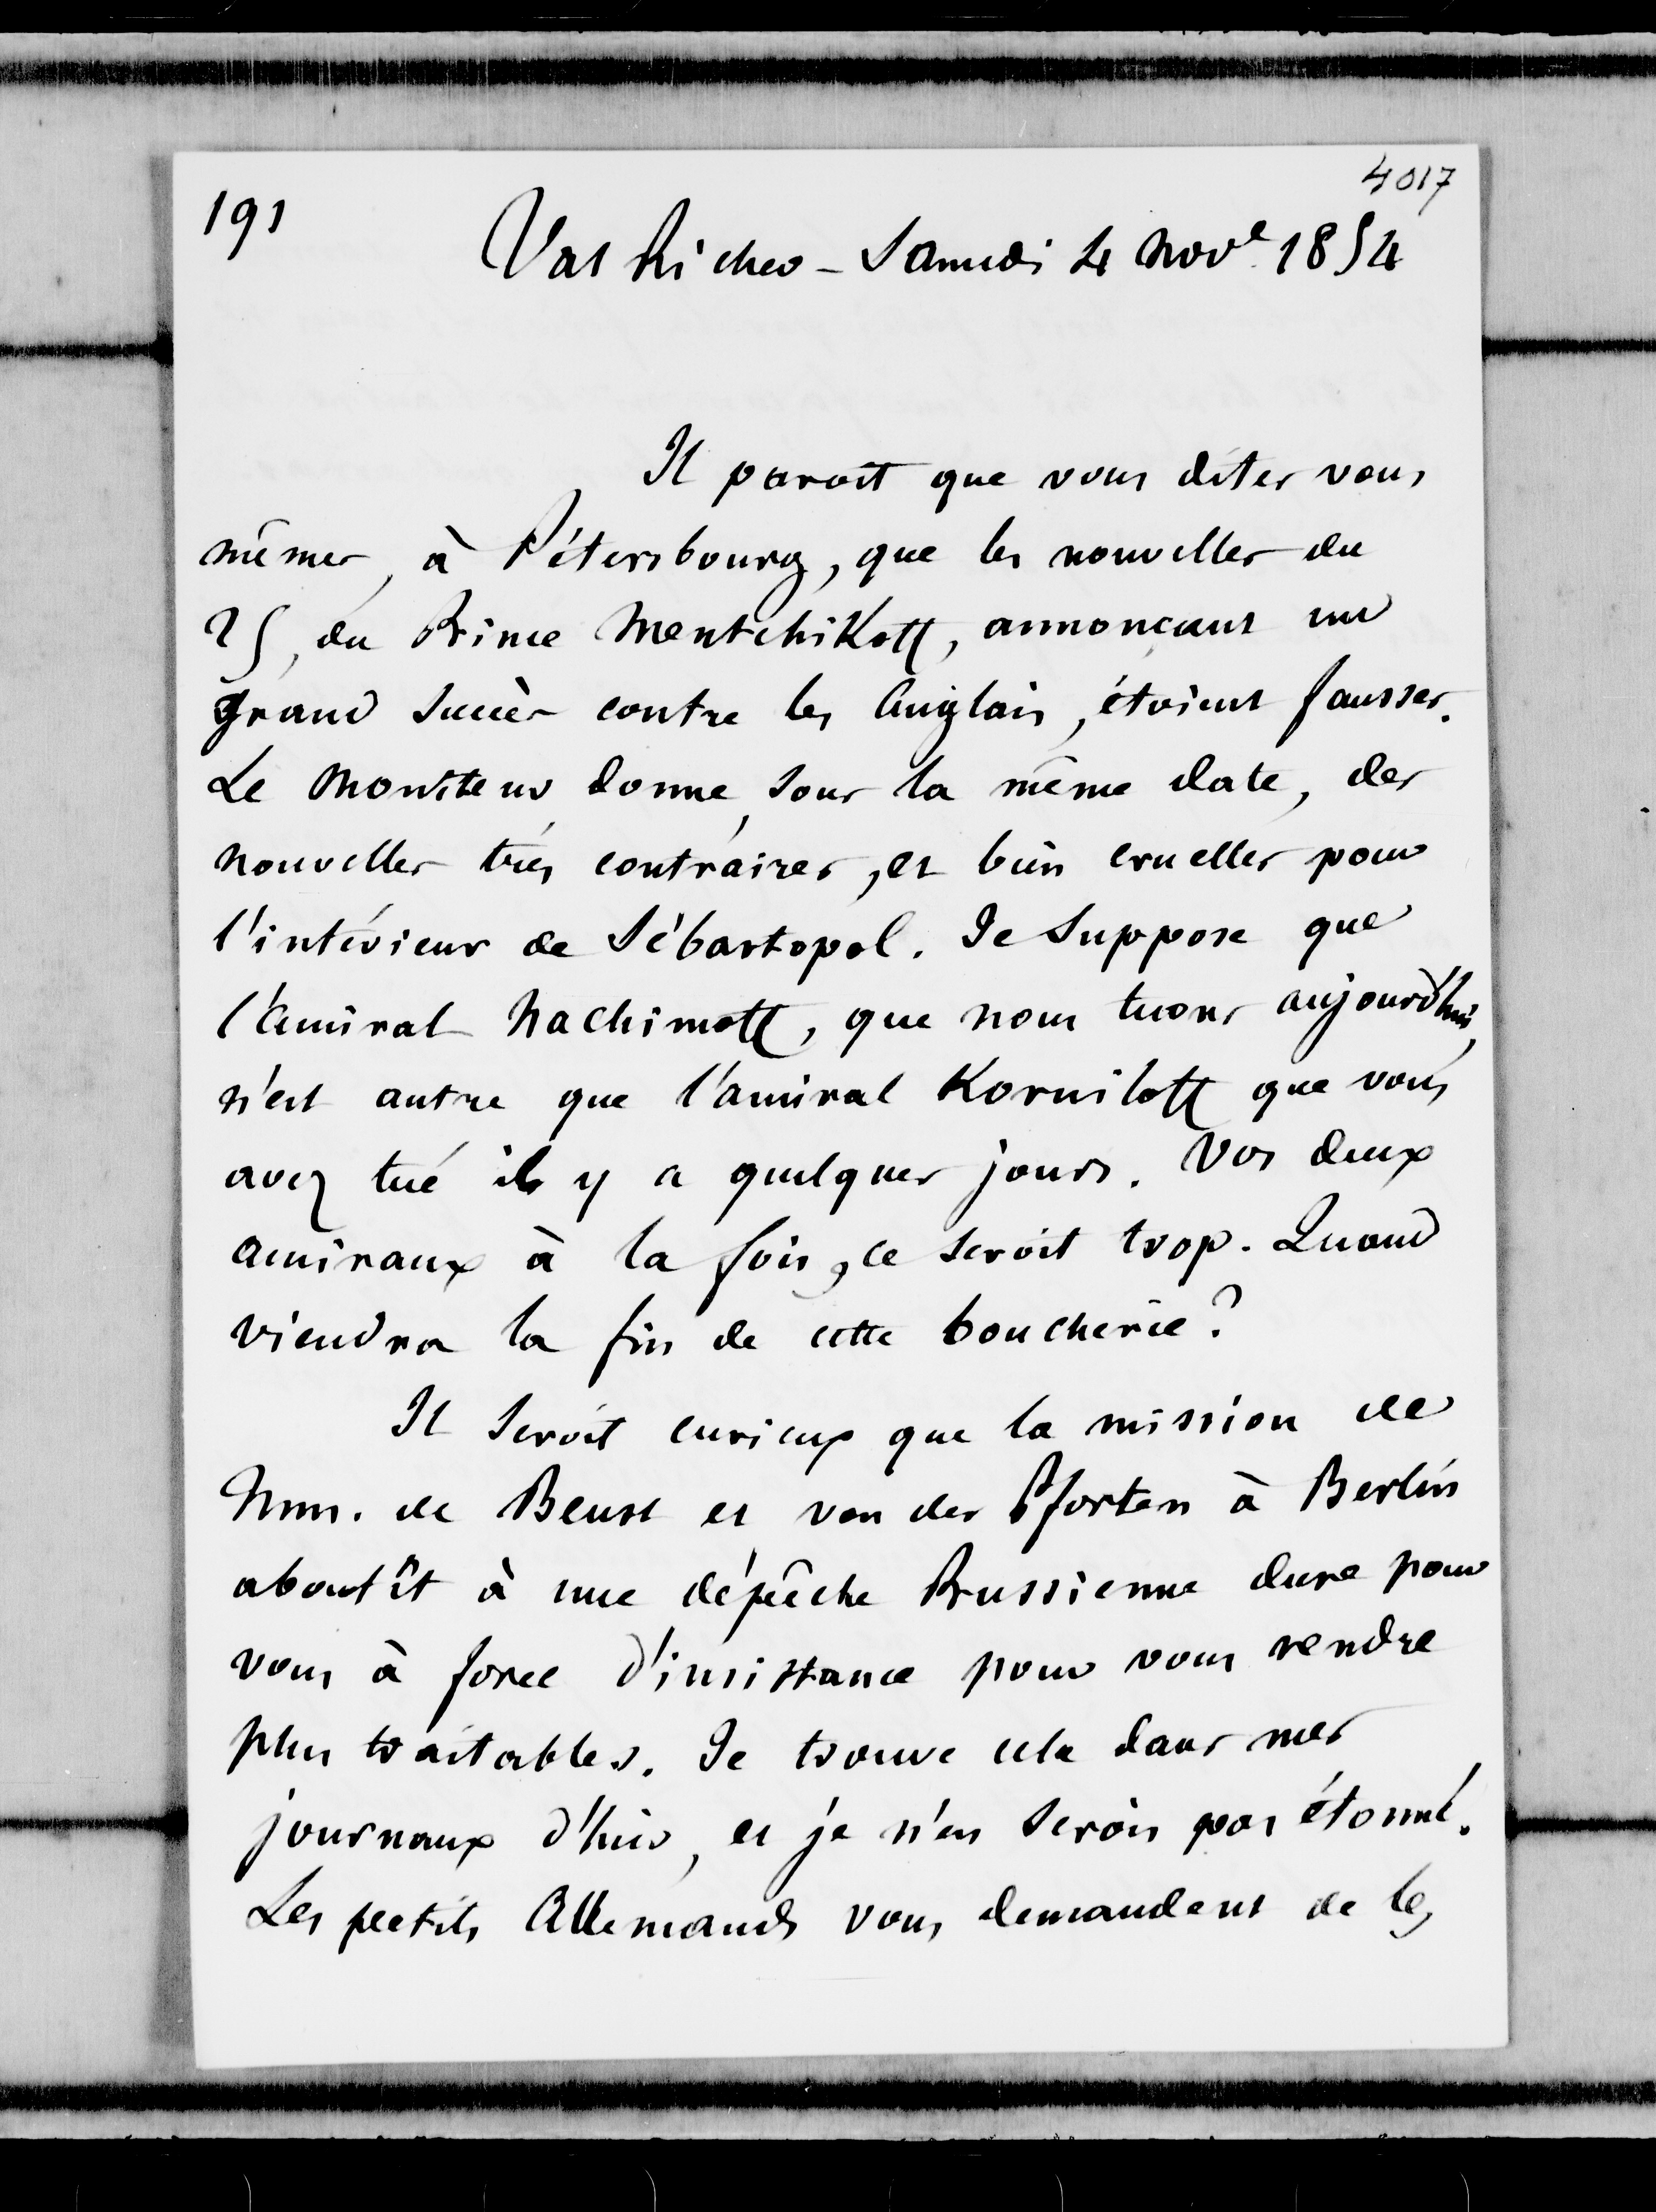 4017
191
Val Richer - Samedi 4 Nov.e 1854
Il paroit que vous dites vous
mêmes, à Pétersbourg, que les nouvelles du
25, du Prince Mentchikoff, annonçant un
grand succès contre les Anglais, étoient fausses.
Le Moniteur donne, sous la même date, des
nouvelles très contraires, et bien cruelles pour
l'intérieur de Sébastopol. Je suppose que
l'amiral Nachimoff, que nous tuons aujourd'hui,
n'est autre que l'amiral Korniloff que vous
avez tué il y a quelques jours. Vos deux
amiraux à la fois, ce seroit trop. Quand
viendra la fin de cette boucherie?
Il seroit curieux que la mission de
Mm. de Beust et von der Pforten à Berlin
aboutît à une dépêche Prussienne dure pour
vous à force d'insistance pour vous rendre
plus traitables. Je trouve cela dans mes
journaux d'hier, et je n'en serois pas étonné.
Les petits Allemands vous demandent de les